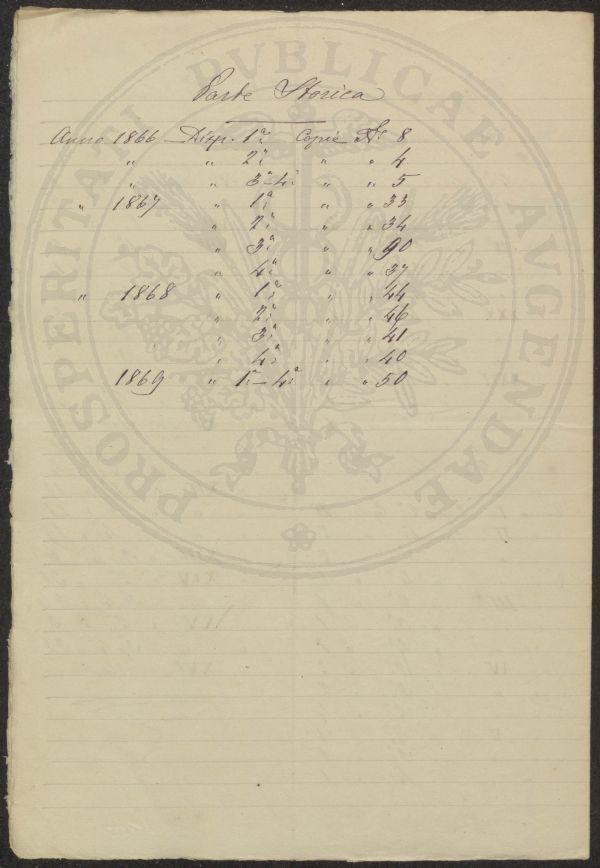 Parte Storica
Anno 1866 – Disp. 1ª Copie Nº 8
" " 2ª " " 4
" " 3ª–4ª " " 5
" 1867 " 1ª " " 33
" 2ª " " 34
" 3ª " " 90
" 4ª " " 37
" 1868 " 1ª " " 44
" 2ª " " 46
" 3ª " " 41
" 4ª " " 40
1869 " 1ª–4ª " " 50
PROSPERITATI PVBLICAE AVGENDAE